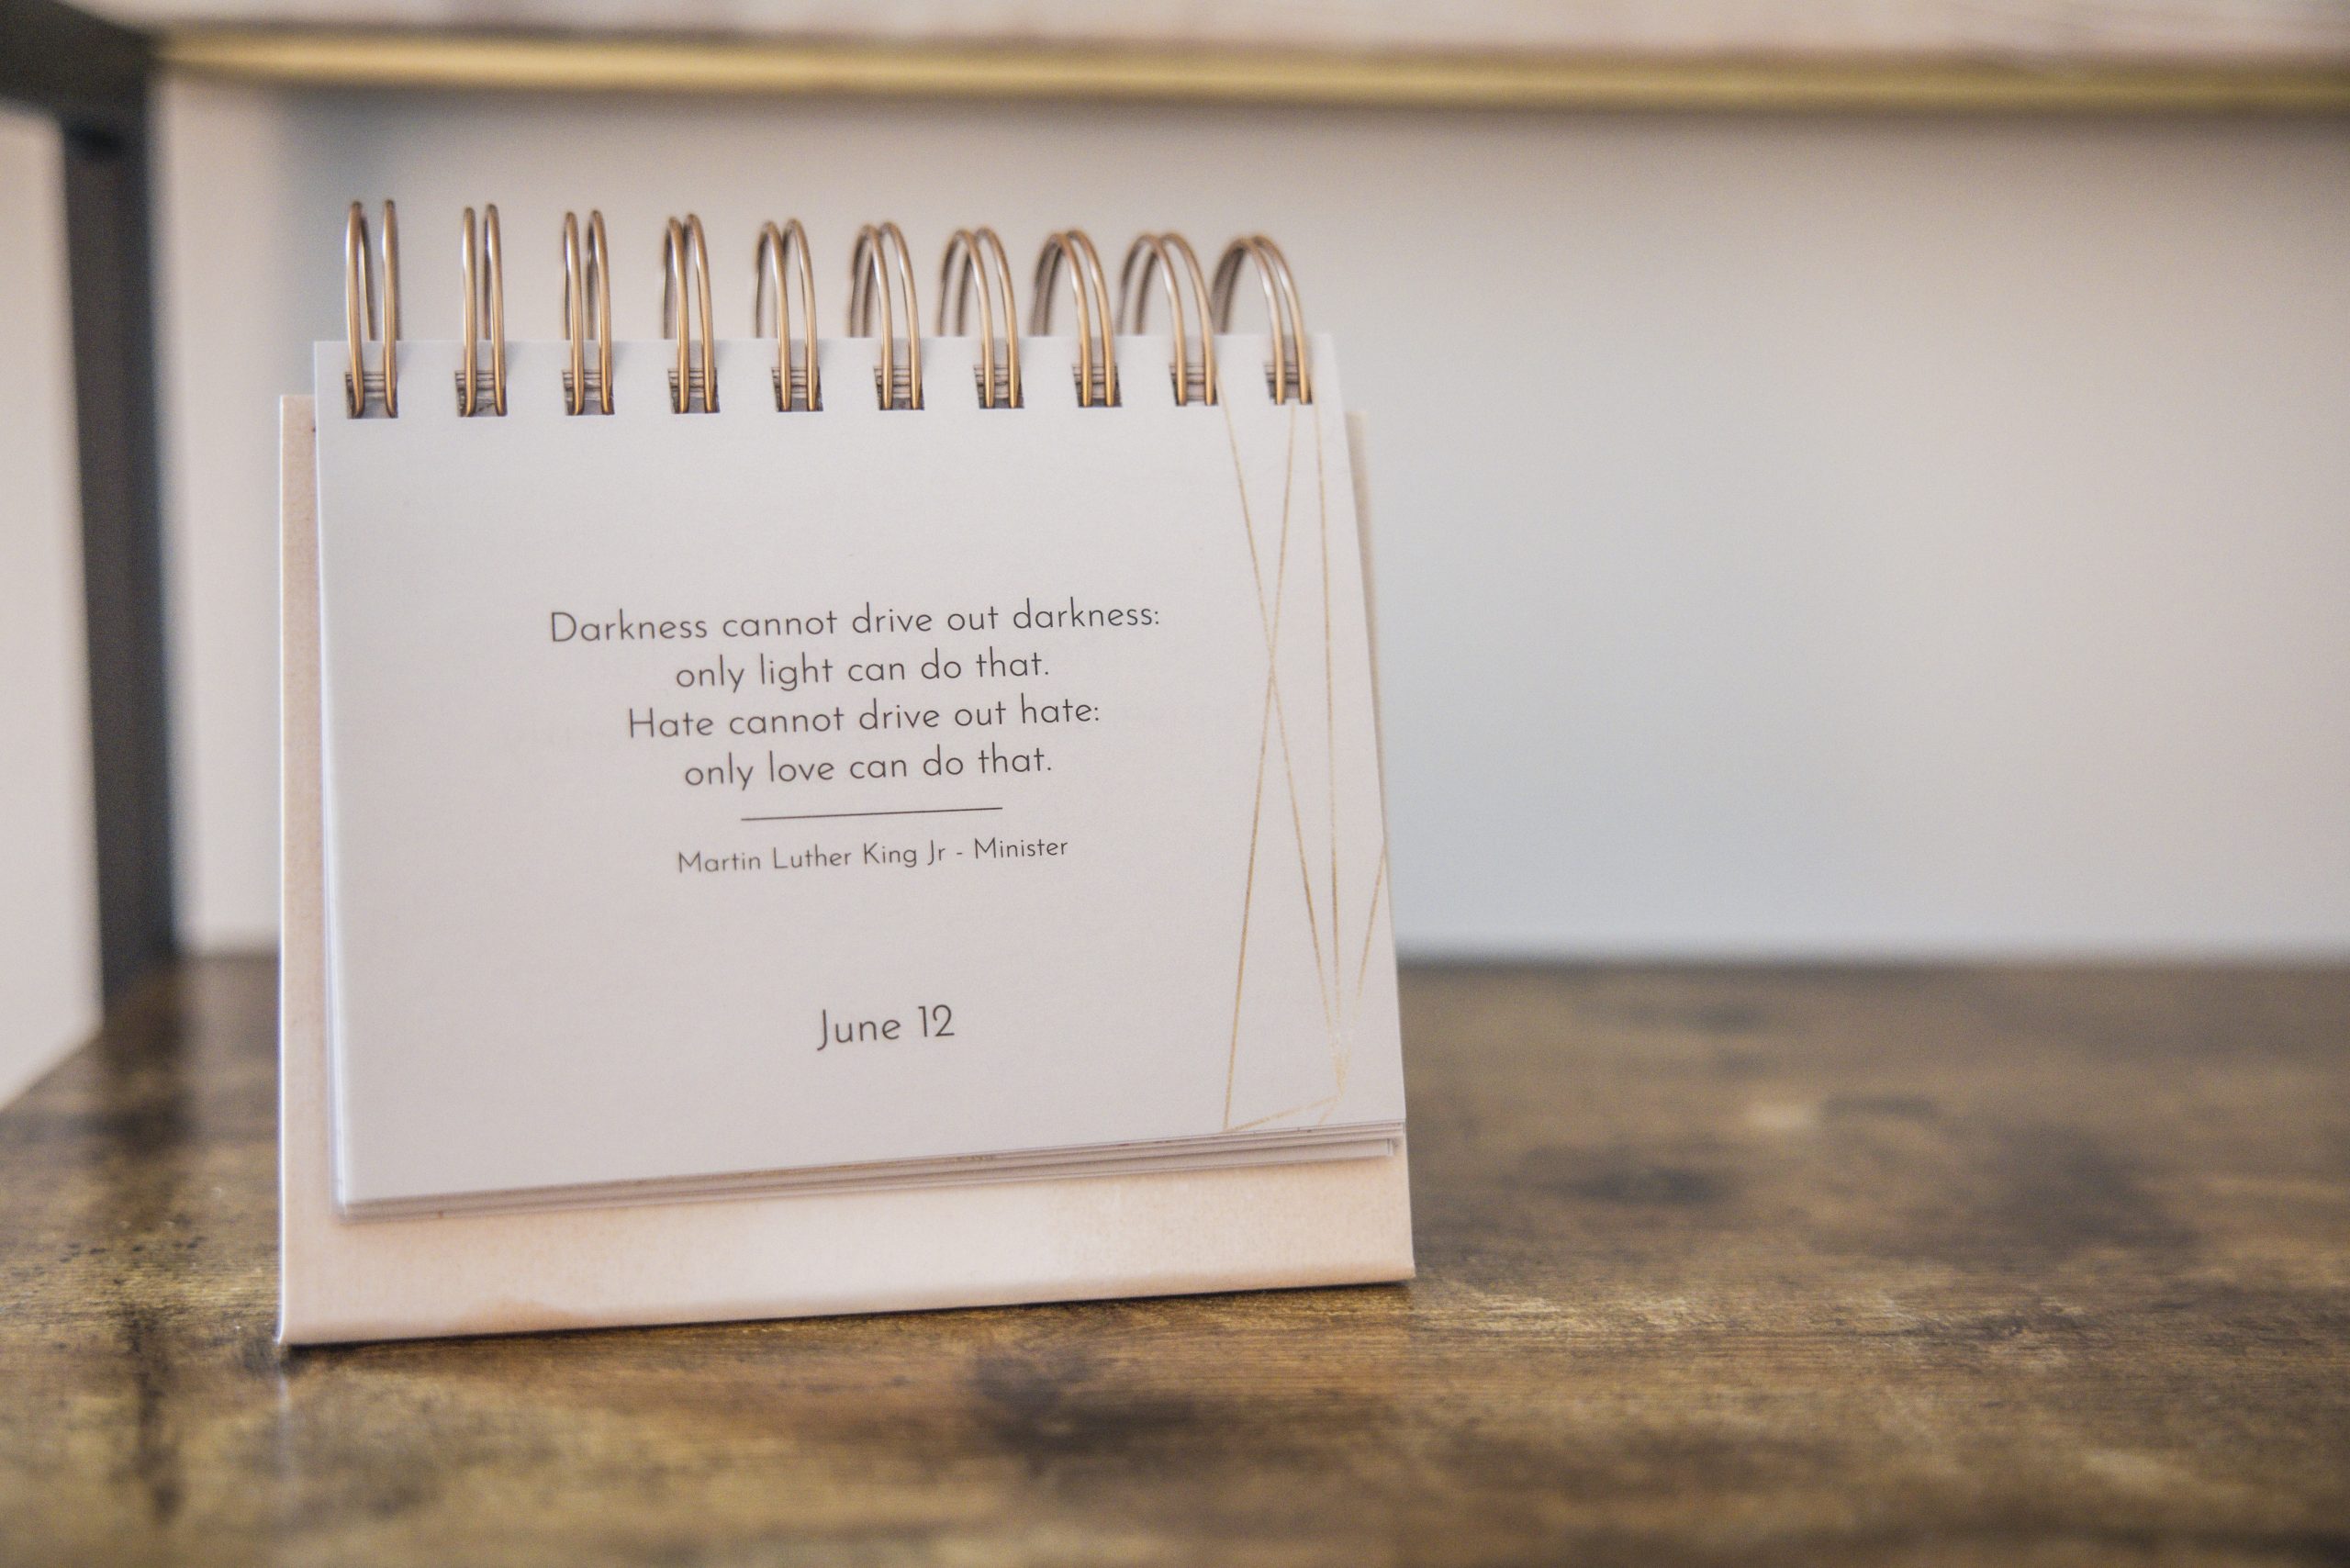 Darkness cannot drive out darkness:
only light can do that.
Hate cannot drive out hate:
only love can do that.
Martin Luther King Jr - Minister
June 12